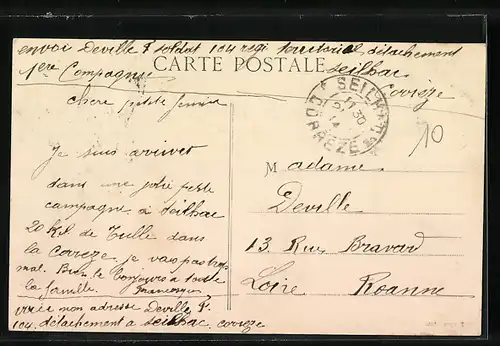 envoi Deville P soldat 104 regi territorial détachement
1ere Compagnie
CARTE POSTALE
Seilhac
Corrèze
SEILHAC
11 30
14
CORRÈZE
10
chere petite femme
Je suis arrivet
dans une jolie petite
campagne a Seilhac
20 Kil de Tulle dans
la Correze je vas pas trop
mal. Bien le bonjours a toute
la famille
adresse Deville P.
104 détachement a Seilhac, corrèze
Madame
Deville
13. Rue Bravard
Loire Roanne